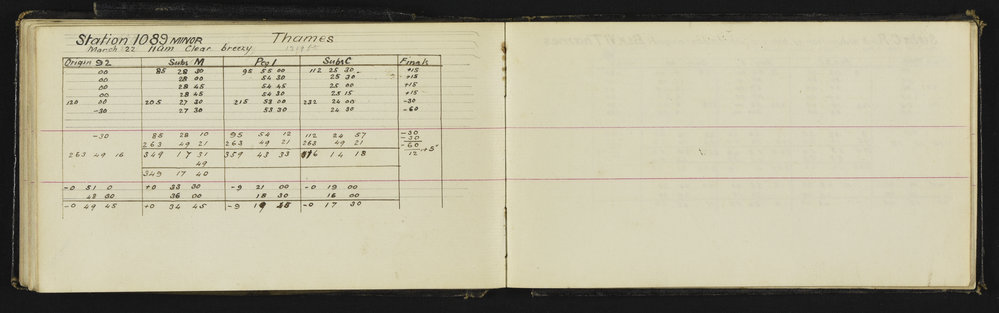 Station 1089 MINOR Thames
March 22 11am Clear breezy
Origin 92 Subs M Peg 1 Subs C Finals
00 85 28 30 95 55 00 112 25 30 +15
00 28 00 54 30 25 30 +15
00 28 45 54 45 25 00 +15
00 28 45 54 30 25 15 +15
120 00 205 27 30 215 53 00 232 24 00 -30
-30 27 30 53 30 24 30 -60
-30 85 28 10 95 54 12 112 24 57 -30
263 49 21 263 49 21 263 49 21 -30
263 49 16 349 17 31 359 43 33 16 14 18 -60
49 12 +5
349 17 40
-0 51 0 +0 33 30 -9 21 00 -0 19 00
48 30 36 00 18 30 16 00
-0 49 45 +0 34 45 -9 19 45 -0 17 30